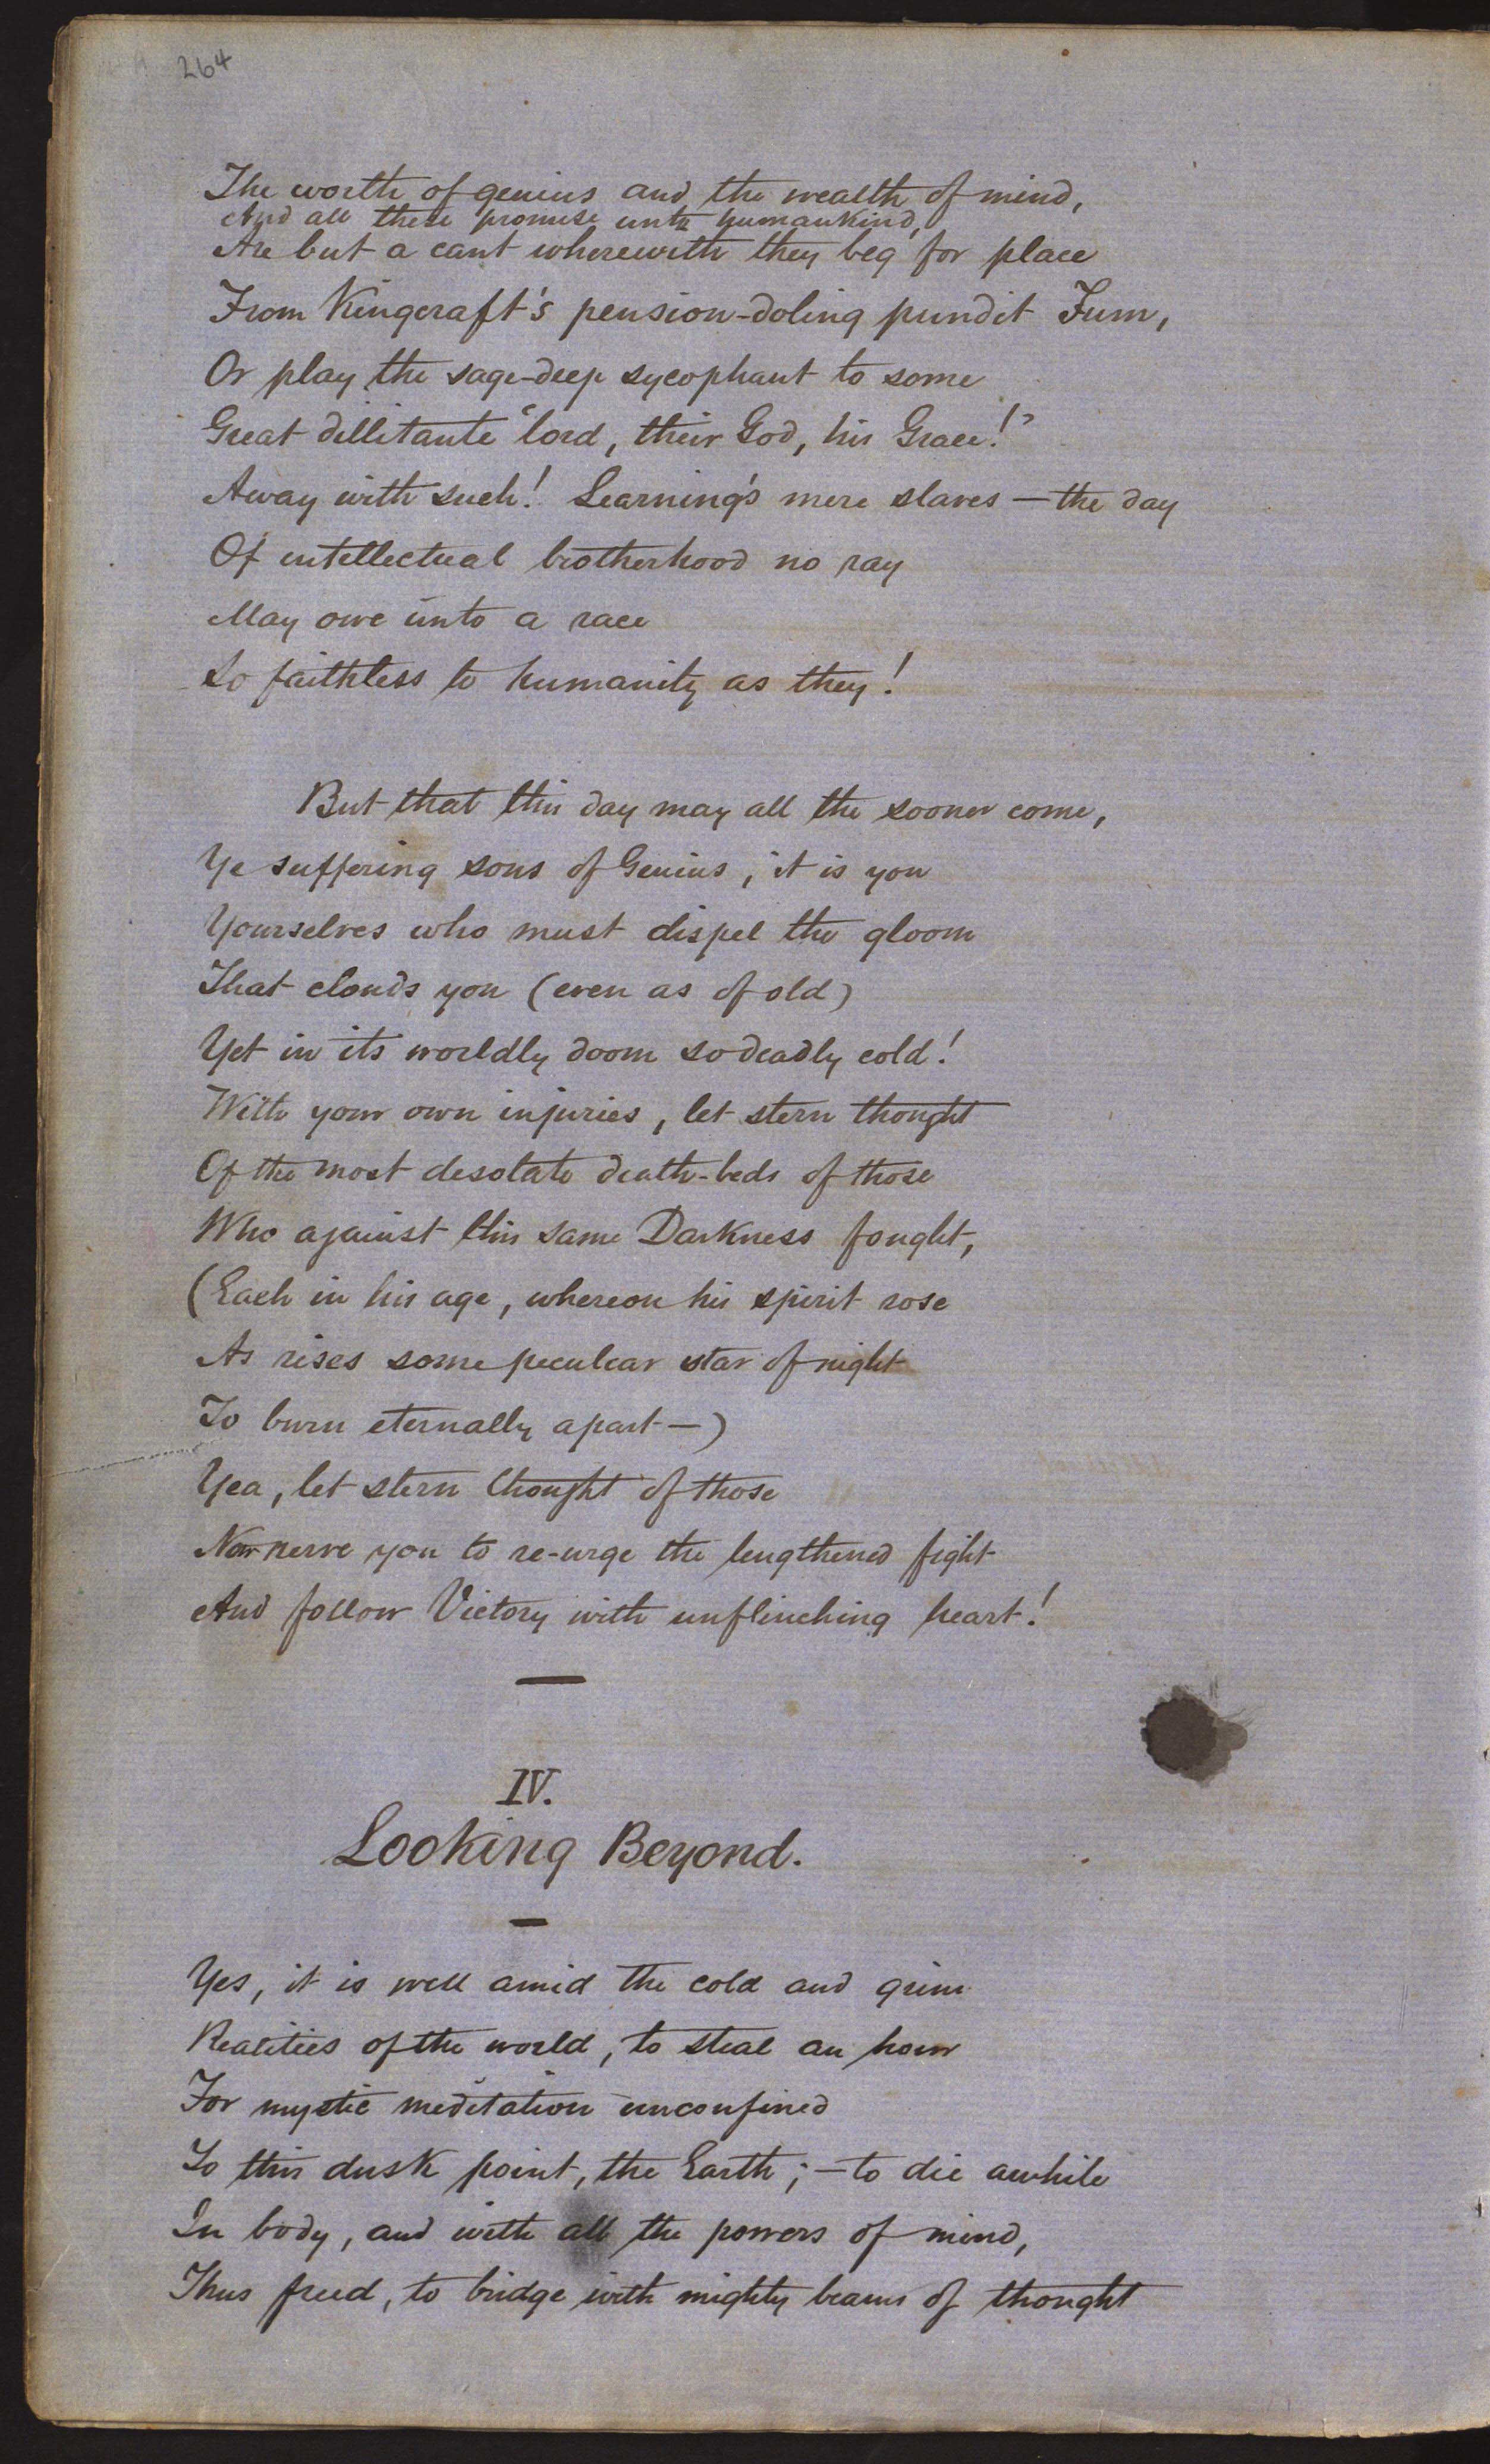 264
The worth of genius and the wealth of mind,
And all these promise unto humankind,
Are but a cant wherewith they beg for place
From Kingcraft's pension-doling pundit Fum,
Or play the sage-deep sycophant to some
Great dillitante "lord, their God, his Grace!"
Away with such! Learning's mere slaves — the day
Of intellectual brotherhood no ray
May owe unto a race
So faithless to humanity as they!
But that this day may all the sooner come,
Ye suffering sons of Genius, it is you
Yourselves who must dispel the gloom
That clouds you (even as of old)
Yet in its worldly doom so deadly cold!
With your own injuries, let stern thought
Of the most desolate death-beds of those
Who against this same Darkness fought,
(Each in his age, whereon his spirit rose
As rises some peculiar star of night
To burn eternally apart —)
Yea, let stern thought of those
Now nerve you to re-urge the lengthened fight
And follow Victory with unflinching heart!
IV.
Looking Beyond.
Yes, it is well amid the cold and grim
Realities of the world, to steal an hour
For mystic meditation unconfined
To this dusk point, the Earth; — to die awhile
In body, and with all the powers of mind,
Thus freed, to bridge with mighty beams of thought